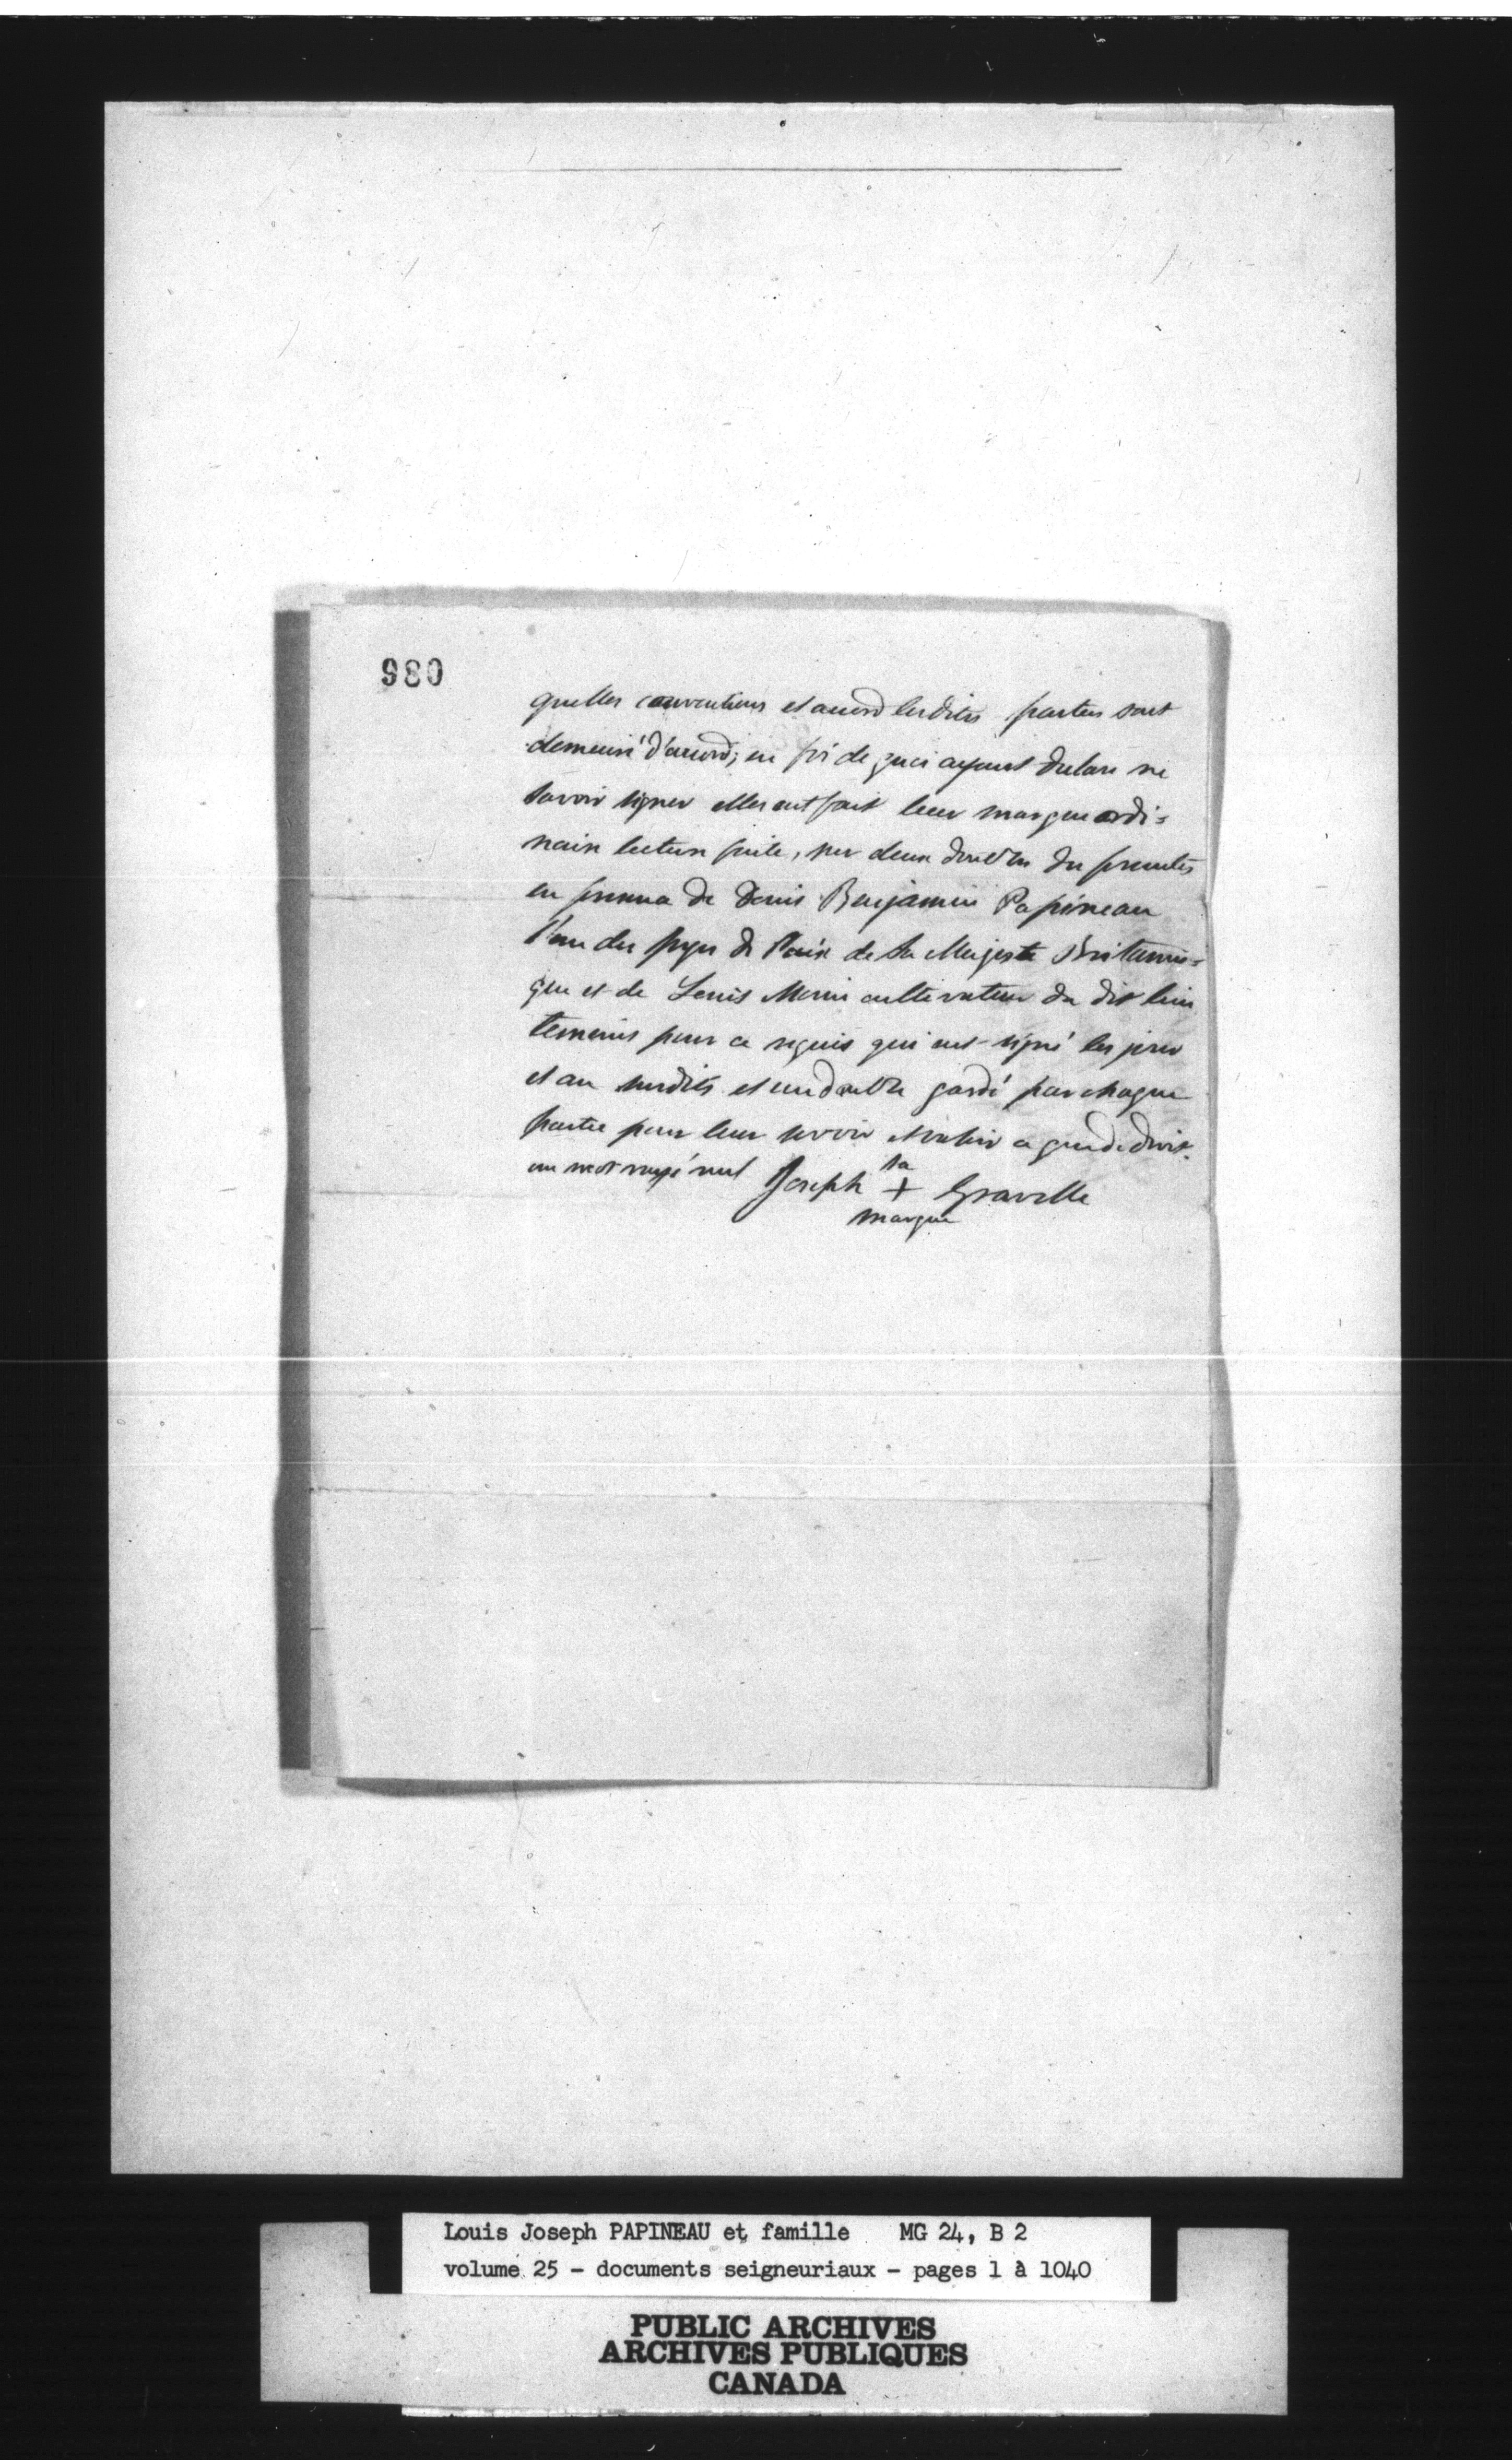 980
quelles conventions et accord lesdites parties sont
demeuré d'accord; en foi de quoi ayant declare ne
savoir signer elles ont fait leur marque ordi=
naire lecture faite, sur deux doubles des presentes
en presence de Denis Benjamin Papineau
l'un des juges de Paix de Sa Majesté Britanni=
que et de Louis Morin cultivateur du dit lieu
temoins pour ce requis qui ont signé les jour
et an susdits et un double gardé par chaque
partie pour leur servir et valoir ce que de droit.
un mot rayé nul Joseph + Gravelle
sa
marque
Louis Joseph PAPINEAU et famille MG 24, B 2
volume 25 - documents seigneuriaux - pages 1 à 1040
PUBLIC ARCHIVES
ARCHIVES PUBLIQUES
CANADA